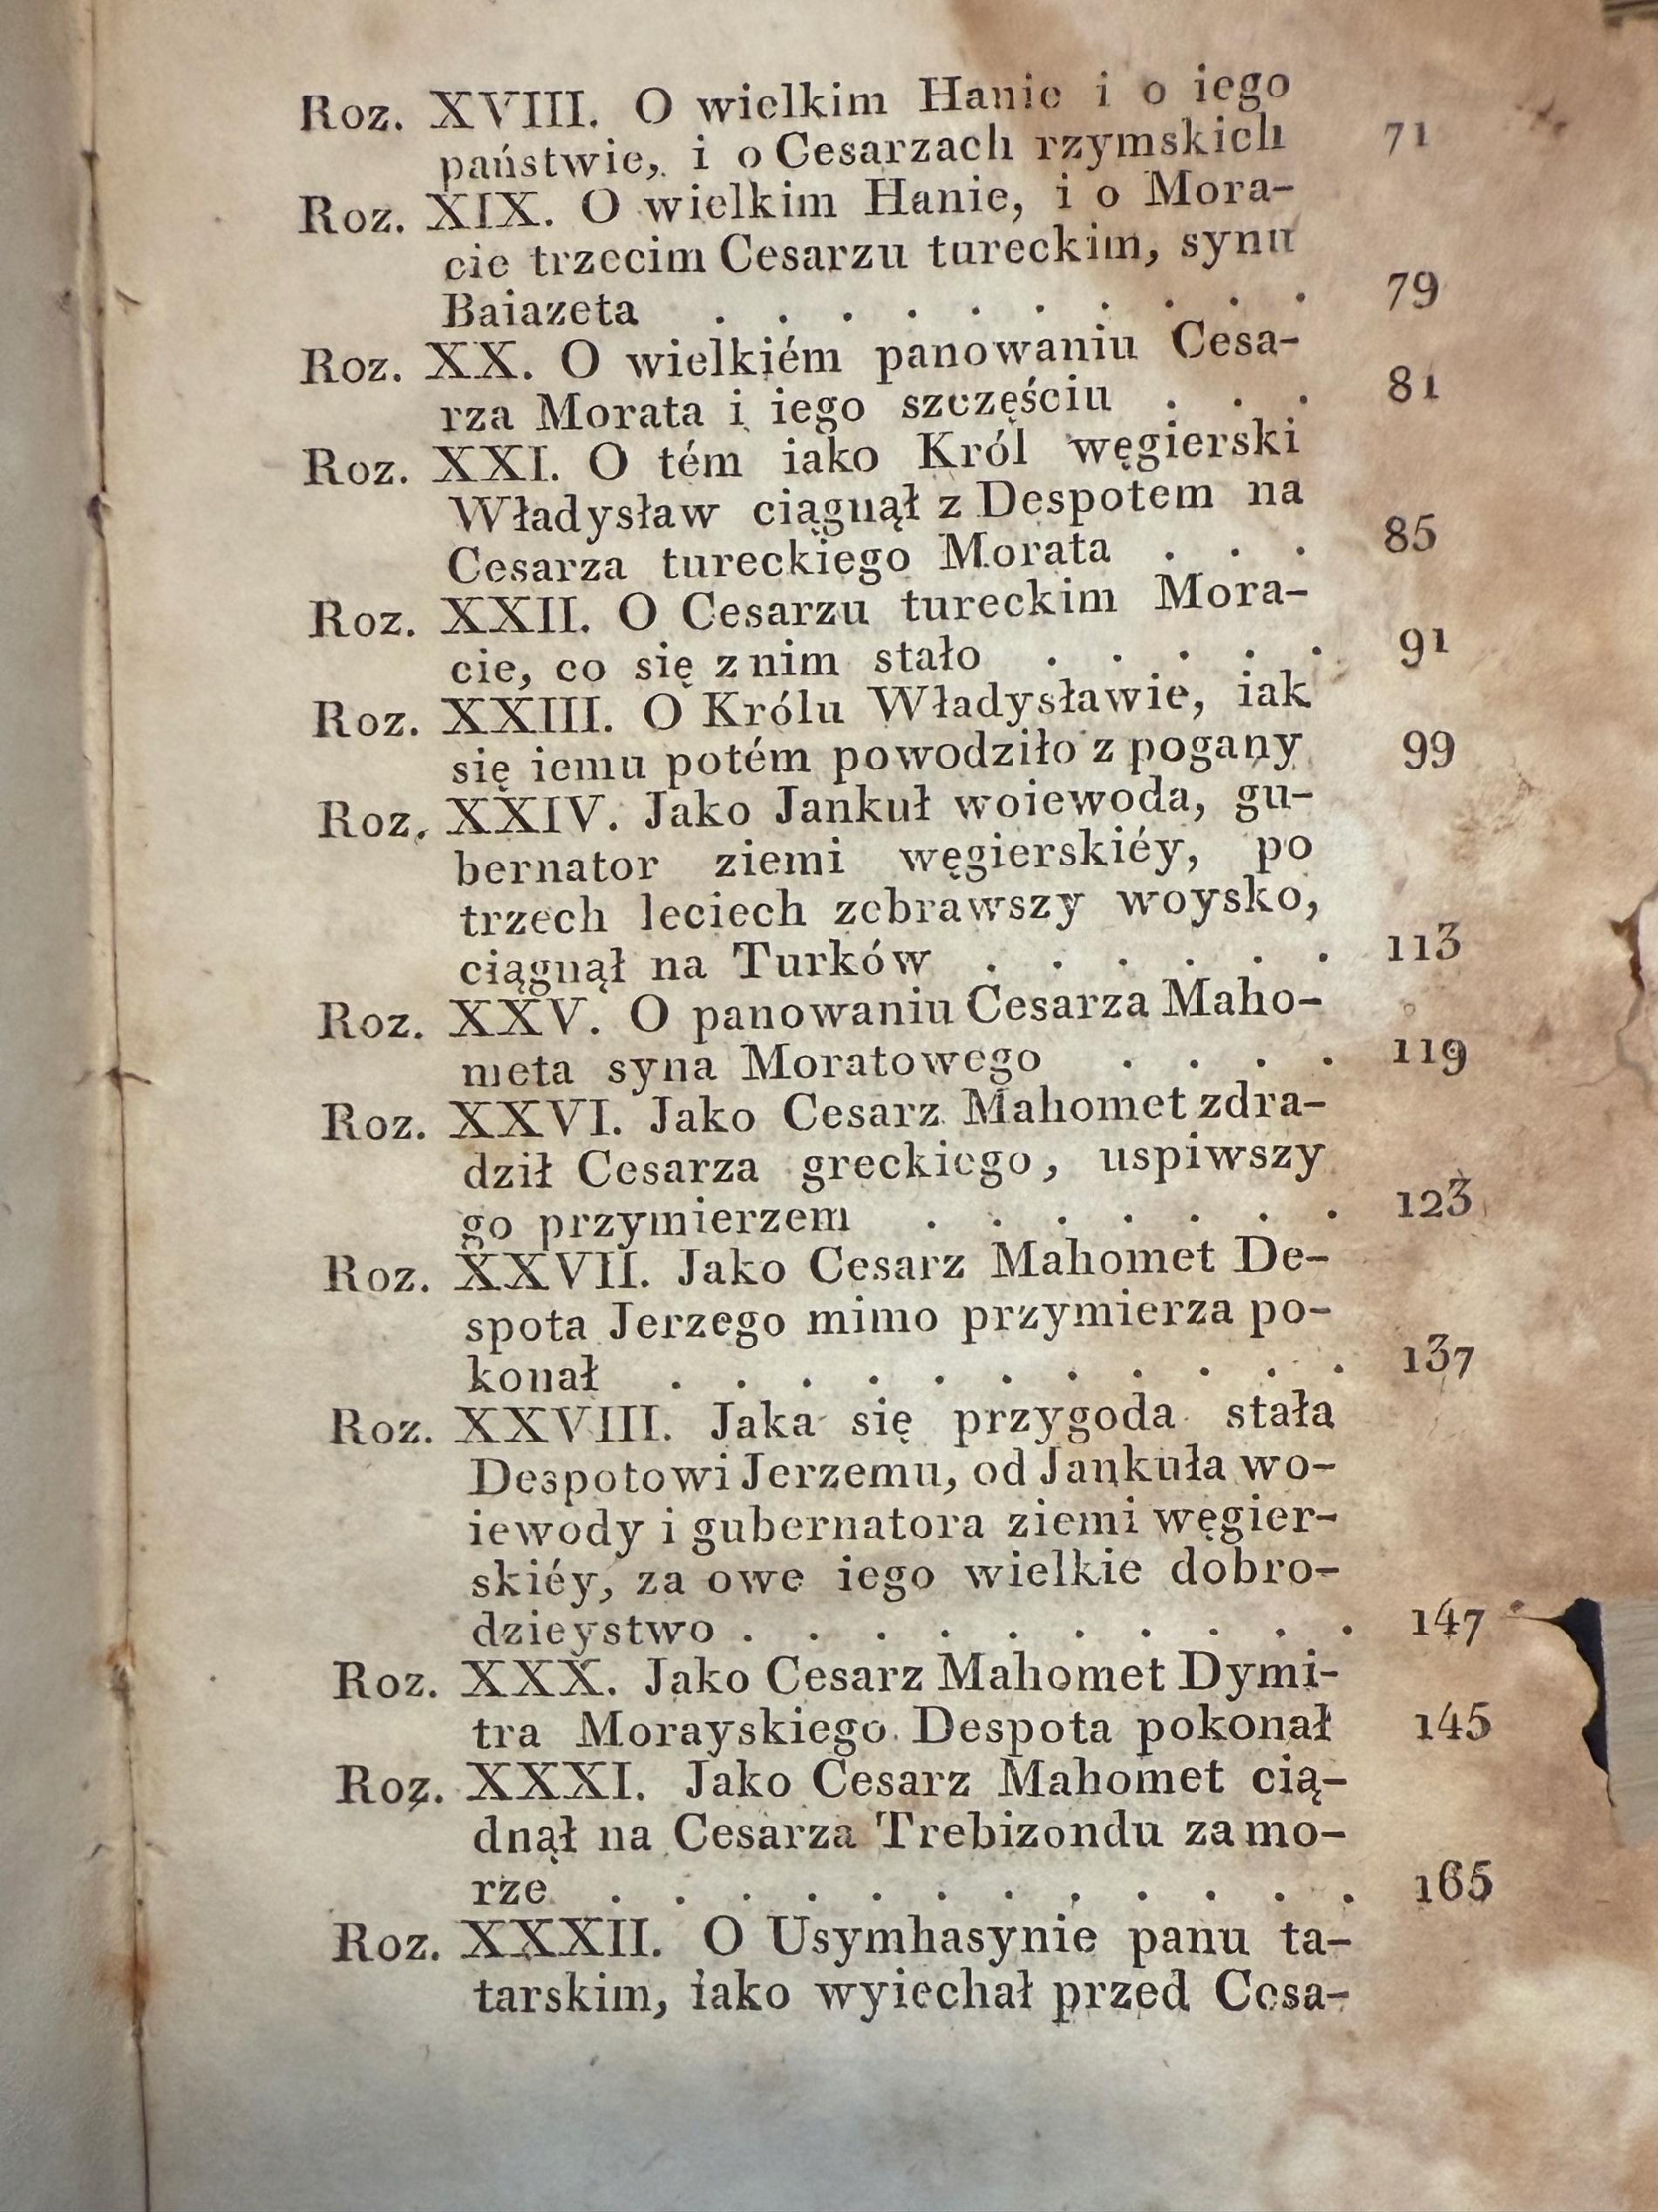 Roz. XVIII. O wielkim Hanie i o iego
państwie, i o Cesarzach rzymskich 71
Roz. XIX. O wielkim Hanie, i o Mora-
cie trzecim Cesarzu tureckim, synu
Baiazeta . . . . . . . . . . 79
Roz. XX. O wielkiém panowaniu Cesa-
rza Morata i iego szczęściu . . . 81
Roz. XXI. O tém iako Król węgierski
Władysław ciągnął z Despotem na
Cesarza tureckiego Morata . . . 85
Roz. XXII. O Cesarzu tureckim Mora-
cie, co się z nim stało . . . . . 91
Roz. XXIII. O Królu Władysławie, iak
się iemu potém powodziło z pogany 99
Roz. XXIV. Jako Jankuł woiewoda, gu-
bernator ziemi węgierskiéy, po
trzech leciech zebrawszy woysko,
ciągnął na Turków . . . . . . 113
Roz. XXV. O panowaniu Cesarza Maho-
meta syna Moratowego . . . . 119
Roz. XXVI. Jako Cesarz Mahomet zdra-
dził Cesarza greckiego, uspiwszy
go przymierzem . . . . . . . 123
Roz. XXVII. Jako Cesarz Mahomet De-
spota Jerzego mimo przymierza po-
konał . . . . . . . . . . . 137
Roz. XXVIII. Jaka się przygoda stała
Despotowi Jerzemu, od Jankuła wo-
iewody i gubernatora ziemi węgier-
skiéy, za owe iego wielkie dobro-
dzieystwo . . . . . . . . . . 147
Roz. XXX. Jako Cesarz Mahomet Dymi-
tra Morayskiego Despota pokonał 145
Roz. XXXI. Jako Cesarz Mahomet cią-
dnął na Cesarza Trebizondu za mo-
rze . . . . . . . . . . . . 165
Roz. XXXII. O Usymhasynie panu ta-
tarskim, iako wyiechał przed Cesa-